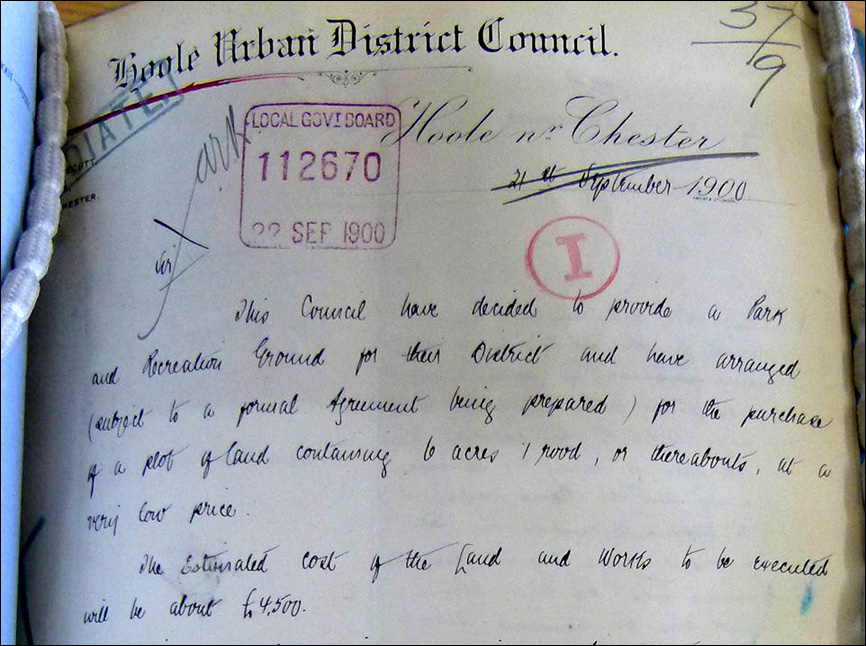 Hoole Urban District Council.
37/9
Park
LOCAL GOVT BOARD
112670
22 SEP 1900
Hoole nr Chester
21st September 1900
CHESTER.
I
Sir
This Council have decided to provide a Park
and Recreation Ground for their District and have arranged
(subject to a formal Agreement being prepared) for the purchase
of a plot of land containing 6 acres 1 rood, or thereabouts, at a
very low price.
The Estimated cost of the Land and Works to be executed
will be about £4,500.